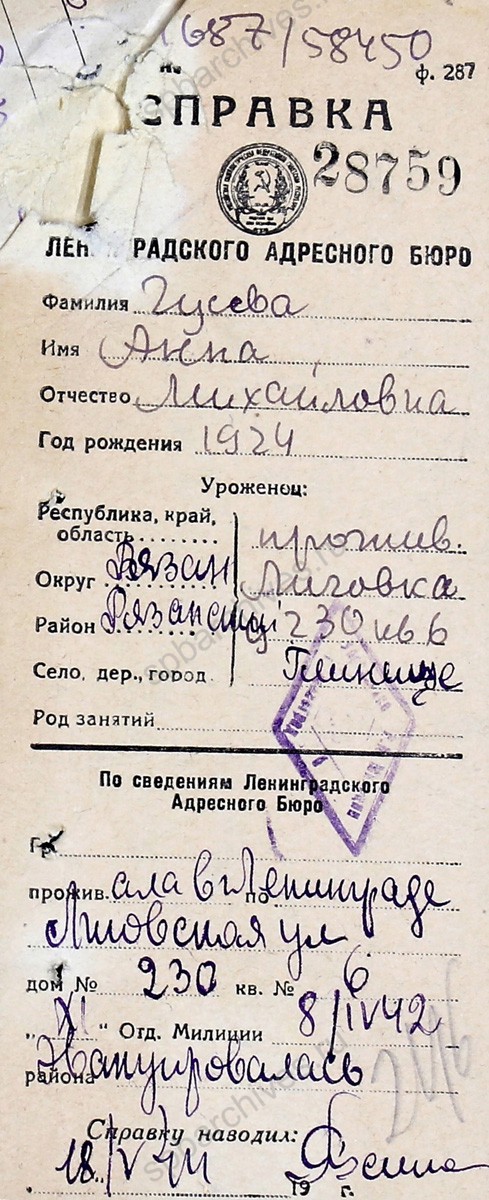 1687/58450
ф. 287
СПРАВКА
28759
ЛЕН РАДСКОГО АДРЕСНОГО БЮРО
Фамилия Гусева
Имя Анна
Отчество Михайловна
Год рождения 1924
Уроженец:
Республика, край, область прожив.
Округ Рязан Лиговка
Район Рязанский 230 кв 6
Село, дер., город Глинище
Род занятий
По сведениям Ленинградского
Адресного Бюро
Гр.
прожив ала в Ленинграде по
Лиговская ул
дом № 230 кв. № 6
"XI" Отд. Милиции 8/IV 42
района Эвакуировалась
206
Справку наводил:
18/V 44 19 г.
spbarchives.ru